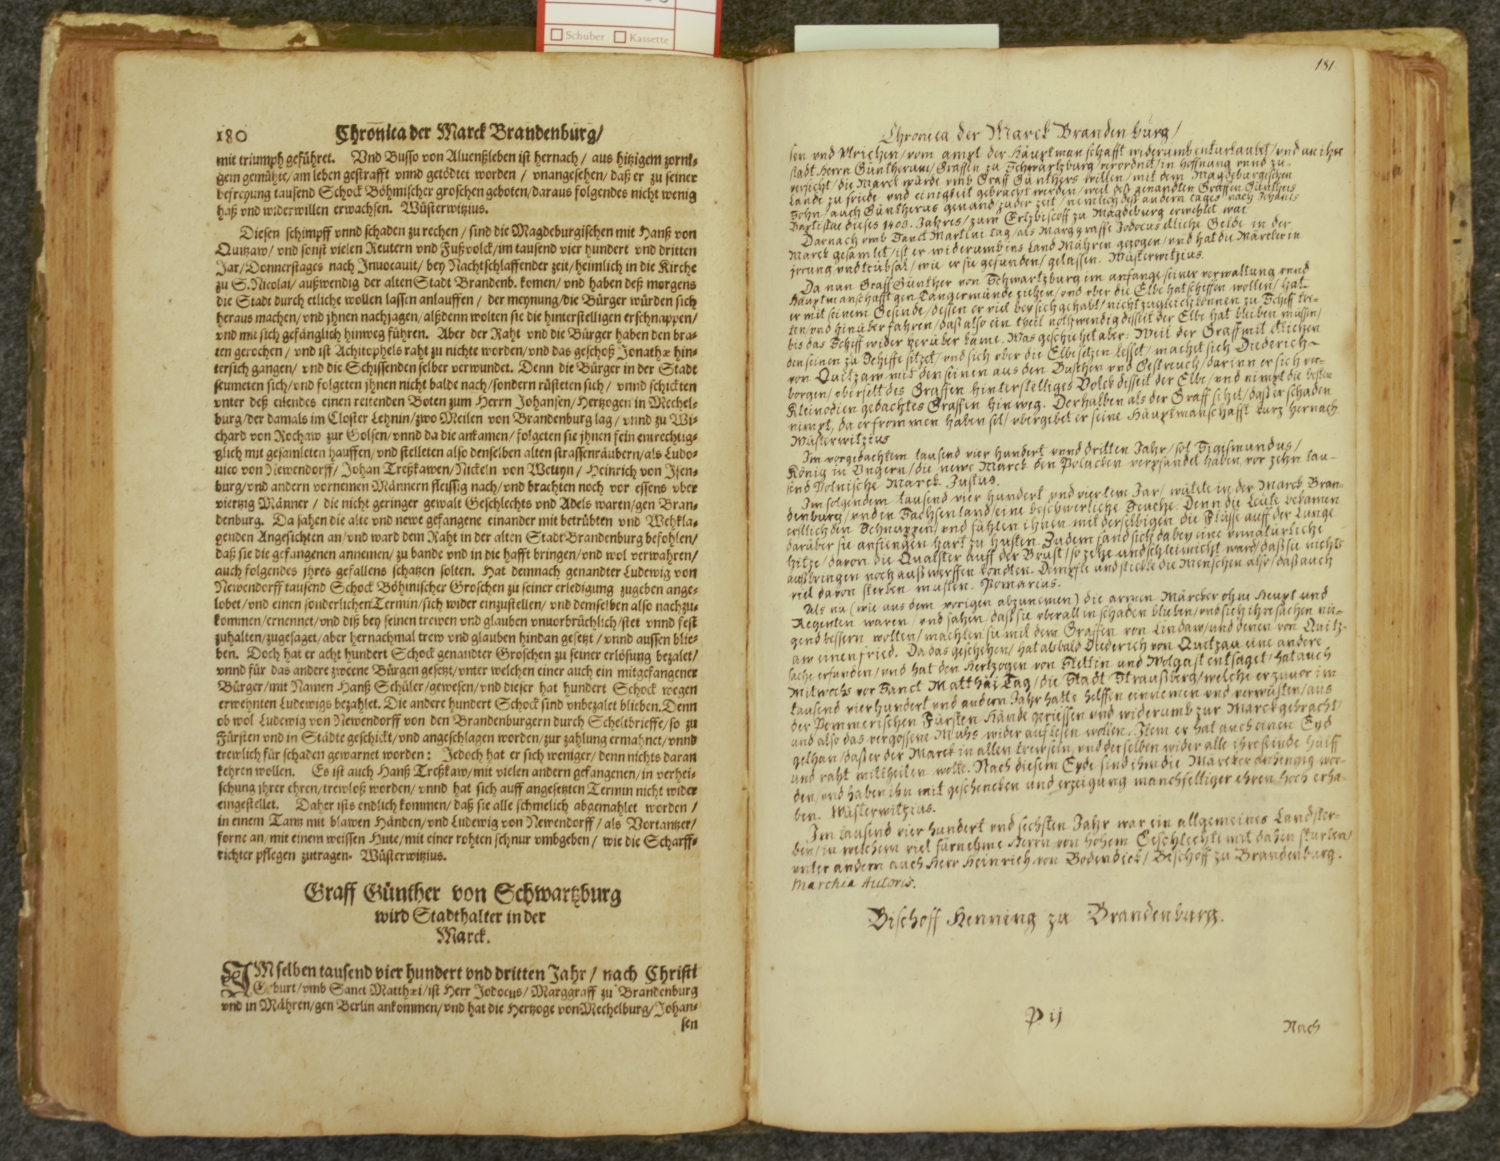 Schuber Kassette
180 Chronica der Marck Brandenburg/
mit triumph geführet. Vnd Busso von Aluenßleben ist hernach/ aus hitzigem zorni-
gem gemühte/am leben gestrafft vnnd getödtet worden / vnangesehen/ daß er zu seiner
befreyung tausend Schock Böhmischer groschen geboten/daraus folgendes nicht wenig
haß vnd widerwillen erwachsen. Wüsterwitzius.
Diesen schimpff vnnd schaden zu rechen / sind die Magdeburgischen mit Hanß von
Quitzaw/ vnd sonst vielen Reutern vnd Fußvolck/im tausend vier hundert vnd dritten
Jar/Donnerstages nach Inuocauit/ bey Nachtschlaffender zeit/heimlich in die Kirche
zu S.Nicolai/ außwendig der alten Stadt Brandenb. komen/ vnd haben deß morgens
die Stadt durch etliche wollen lassen anlauffen / der meynung/die Bürger würden sich
heraus machen/vnd jhnen nachjagen/alßdenn wolten sie die hinterstelligen erschnappen/
vnd mit sich gefänglich hinweg führen. Aber der Raht vnd die Bürger haben den bra-
ten gerochen / vnd ist Achitophels raht zu nichte worden/vnd das geschoß Jonathæ hin-
tersich gangen/ vnd die Schissenden selber verwundet. Denn die Bürger in der Stadt
seumeten sich/vnd folgeten jhnen nicht balde nach/sondern rüsteten sich / vnnd schickten
vnter deß eilendes einen reitenden Boten zum Herrn Johansen/Hertzogen in Mechel-
burg/der damals im Closter Lehnin/zwo Meilen von Brandenburg lag/ vnnd zu Wi-
chard von Rochaw zur Golsen/vnnd da die ankamen/folgeten sie jhnen fein eintrechtig-
glich mit gesamleten hauffen/vnd stelleten also denselben alten strassenräubern/als Ludo-
uico von Newendorff/ Johan Treßkawen/Nickeln von Wetzyn/ Heinrich von Isen-
burg/vnd andern vornemen Männern fleissig nach/vnd brachten noch vor essens vber
viertzig Männer / die nicht geringer gewalt Geschlechts vnd Adels waren/gen Bran-
denburg. Da sahen die alte vnd newe gefangene einander mit betrübten vnd Wehkla-
genden Angesichten an/vnd ward dem Raht in der alten Stadt Brandenburg befohlen/
daß sie die gefangenen annemen/zu bande vnd in die hafft bringen/vnd wol verwahren/
auch folgendes jhres gefallens schatzen solten. Hat demnach genandter Ludewig von
Newendorff tausend Schock Böhmischer Groschen zu seiner erledigung zugeben ange-
lobet/vnd einen sonderlichen Termin/sich wider einzustellen/ vnd demselben also nachzu-
kommen/ernennet/vnd diß bey seinen trewen vnd glauben vnuorbrüchlich/stet vnnd fest
zuhalten/zugesaget/aber hernachmal trew vnd glauben hindan gesetzt / vnnd aussen blie-
ben. Doch hat er acht hundert Schock genandter Groschen zu seiner erlösung bezalet/
vnnd für das andere zweene Bürgen gesetzt/vnter welchen einer auch ein mitgefangener
Bürger/mit Namen Hanß Schüler/gewesen/vnd dieser hat hundert Schock wegen
erwehnten Ludewigs bezahlet. Die andere hundert Schock sind vnbezalet blieben. Denn
ob wol Ludewig von Newendorff von den Brandenburgern durch Scheltbrieffe/so zu
Fürsten vnd in Städte geschickt/vnd angeschlagen worden/zur zahlung ermahnet/vnnd
trewlich für schaden gewarnet worden: Jedoch hat er sich weniger/denn nichts daran
kehren wollen. Es ist auch Hanß Treßkaw/mit vielen andern gefangenen/in verhei-
schung jhrer ehren/trewloß worden/ vnnd hat sich auff angesetzten Termin nicht wider
eingestellet. Daher ists endlich kommen/ daß sie alle schmelich abgemahlet worden /
in einem Tantz mit blawen Händen/vnd Ludewig von Newendorff/als Vortantzer/
forne an/mit einem weissen Hute/mit einer rohten schnur vmbgeben/ wie die Scharff-
richter pflegen zutragen. Wüsterwitzius.
Graff Günther von Schwartzburg
wird Stadthalter in der
Marck.
IM selben tausend vier hundert vnd dritten Jahr / nach Christi
Geburt/vmb Sanct Matthæi/ist Herr Jodocus/ Marggraff zu Brandenburg
vnd in Mähren/gen Berlin ankommen/vnd hat die Hertzoge von Mechelburg/Johan-
sen
181
Chronica der Marck Brandenburg/
sen vnd Vlrichen/vom ampt der Häuptmanschafft widerumb enturlaubet/vnd an ihre
stadt Herrn Güntherum/Graffen zu Schwartzburg verordnet/in hoffnung vnnd zu-
versicht/die Marck würde vmb Graff Günthers willen/mit dem Magdeburgischen
Lande zu friede vnd einigkeit gebracht werden/weil deß genandten Graffen Günthers
Sohn/auch Güntherus genand/zu der zeit/nemlich deß andern tages nach Johannis
Baptistae dieses 1403. Jahres/zum Ertzbischoff zu Magdeburg erwehlet war.
Darnach vmb Sanct Martini tag/als Marggraffe Jodocus etliche Gelde in der
Marck gesamlet/ist er widerumb ins Land Mähren gezogen/vnd hat die Märcker in
jrrung vnd trübsal/wie er sie gefunden/gelassen. Wüsterwitzius.
Da nun Graff Günther von Schwartzburg im anfange seiner verwaltung vnnd
Häuptmanschafft gen Tangermünde ziehen/vnd vber die Elbe hat schiffen wollen/hat
er mit seinem Gesinde/dessen er viel bey sich gehabt/nicht zugleich können zu Schiff tre-
ten/vnd hinüber fahren/daß also ein theil nothwendig disseit der Elbe hat bleiben müssen/
bis das Schiff wider herüber käme. Was geschiehet aber. Weil der Graff mit etlichen
den seinen zu Schiffe sitzet/vnd sich vber die Elbe setzen lesset/machet sich Diederich
von Quitzaw mit den seinen aus den Büschen vnd Gestreuch/darinn er sich ver-
borgen/vbereilt des Graffen hinterstelliges Volck disseit der Elbe/vnd nimpt die besten
Kleinodien gedachtes Graffen hinweg. Derhalben als der Graff sihet/daß er schaden
nimpt, da er frommen haben sol/vbergibet er seine Häuptmanschafft kurtz hernach.
Wüsterwitzius
Im vorgedachtem tausend vier hundert vnnd dritten Jahr/sol Sigismundus/
König in Vngern/die newe Marck den Polacken verpfändet haben vor zehn tau-
send Polnische Marck. Justus.
Im folgendem tausend vier hundert vnd vierten Jar/wütete in der Marck Bran-
denburg/vnd in Sachsenland/eine beschwerliche Seuche. Denn die Leute bekamen
erstlich den Schnuppen/vnd fühlten ihnen mit derselbigen die Flüsse auff der Lunge
darüber sie anfiengen hart zu husten. Zudem fand sich dabey eine vnnatürliche
hitze/davon die Qualster auff der Brust/so zehe vnd schleimicht ward/daß sie nichts
außbringen noch außwerffen kondten. Dämpfte vnd stickte die Menschen also/daß auch
viel davon sterben musten. Pomarius.
Als nu (wie aus dem vorigen abzunemen) die armen Märcker ohne Heupt vnd
Regenten waren/vnd sahen/daß sie vberall in schaden blieben/vnd sich ihre sachen nir-
gend bessern wollen/machten sie mit dem Graffen von Lindaw/vnd denen von Quitz-
aw einen fried. Da das geschehen/hat alsbald Diederich von Quitzau eine andere
sache erfunden/vnd hat den Hertzogen von Stettin vnd Wolgast entsaget/hat auch
Mitwochs vor Sanct Matthäi Tag/die Stadt Straußberg/welche er zuvor im
tausend vierhundert vnd andern Jahr hatte helffen einnemen vnd verwüsten/aus
der Pommerischen Fürsten Hände gerissen vnd widerumb zur Marck gebracht/
und also das vergossene Muhs wider aufflesen wollen. Item er hat auch einen Eyd
gethan/daß er der Marck in allen trew sein/vnd derselben wider alle ihre feinde hülff
und raht mittheilen wolte. Nach diesem Eyde sind ihm die Märcker anhengig wor-
den/vnd haben ihn mit geschencken und erzeigung manchfeltiger ehren hoch erha-
ben. Wüsterwitzius.
Im tausend vier hundert vnd sechsten Jahr war ein allgemeines Landster-
ben/in welchem viel fürnehme Herrn von hohem Geschlechte mit dahin sturben/
vnter andern auch Herr Heinrich von Bodendieck/Bischoff zu Brandenburg.
Marchia Autoris.
Bischoff Henning zu Brandenburg.
P ij
Nach